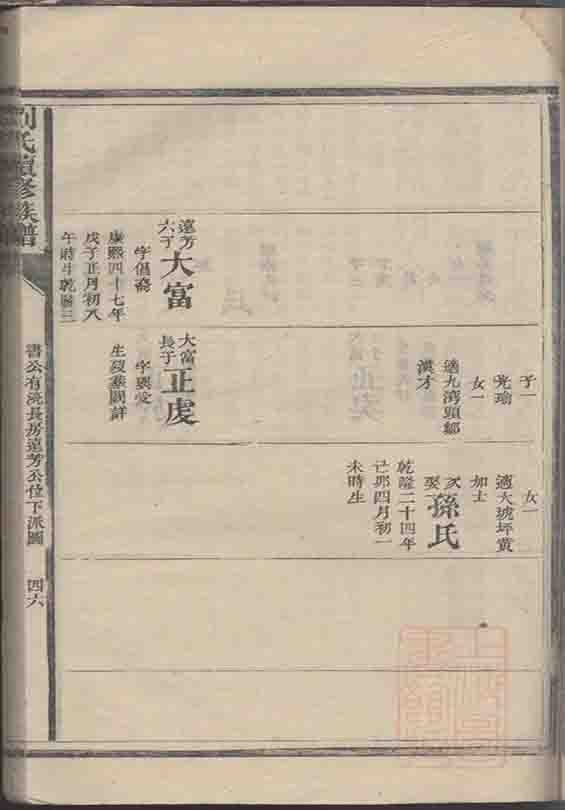 氏續修族譜
書公有洸長房遠芳公位下派圖
四六
遠芳
六子
大富
字倡裔
康熙四十七年
戊子正月初八
午時生乾隆三
子一
光瑜
女一
適九湾頭鄒
漢才
大富
長子
正虔
字
生歿塟闕詳
女一
適大坡坪黄
如士
次
娶
孫氏
乾隆二十四年
己卯四月初一
未時生